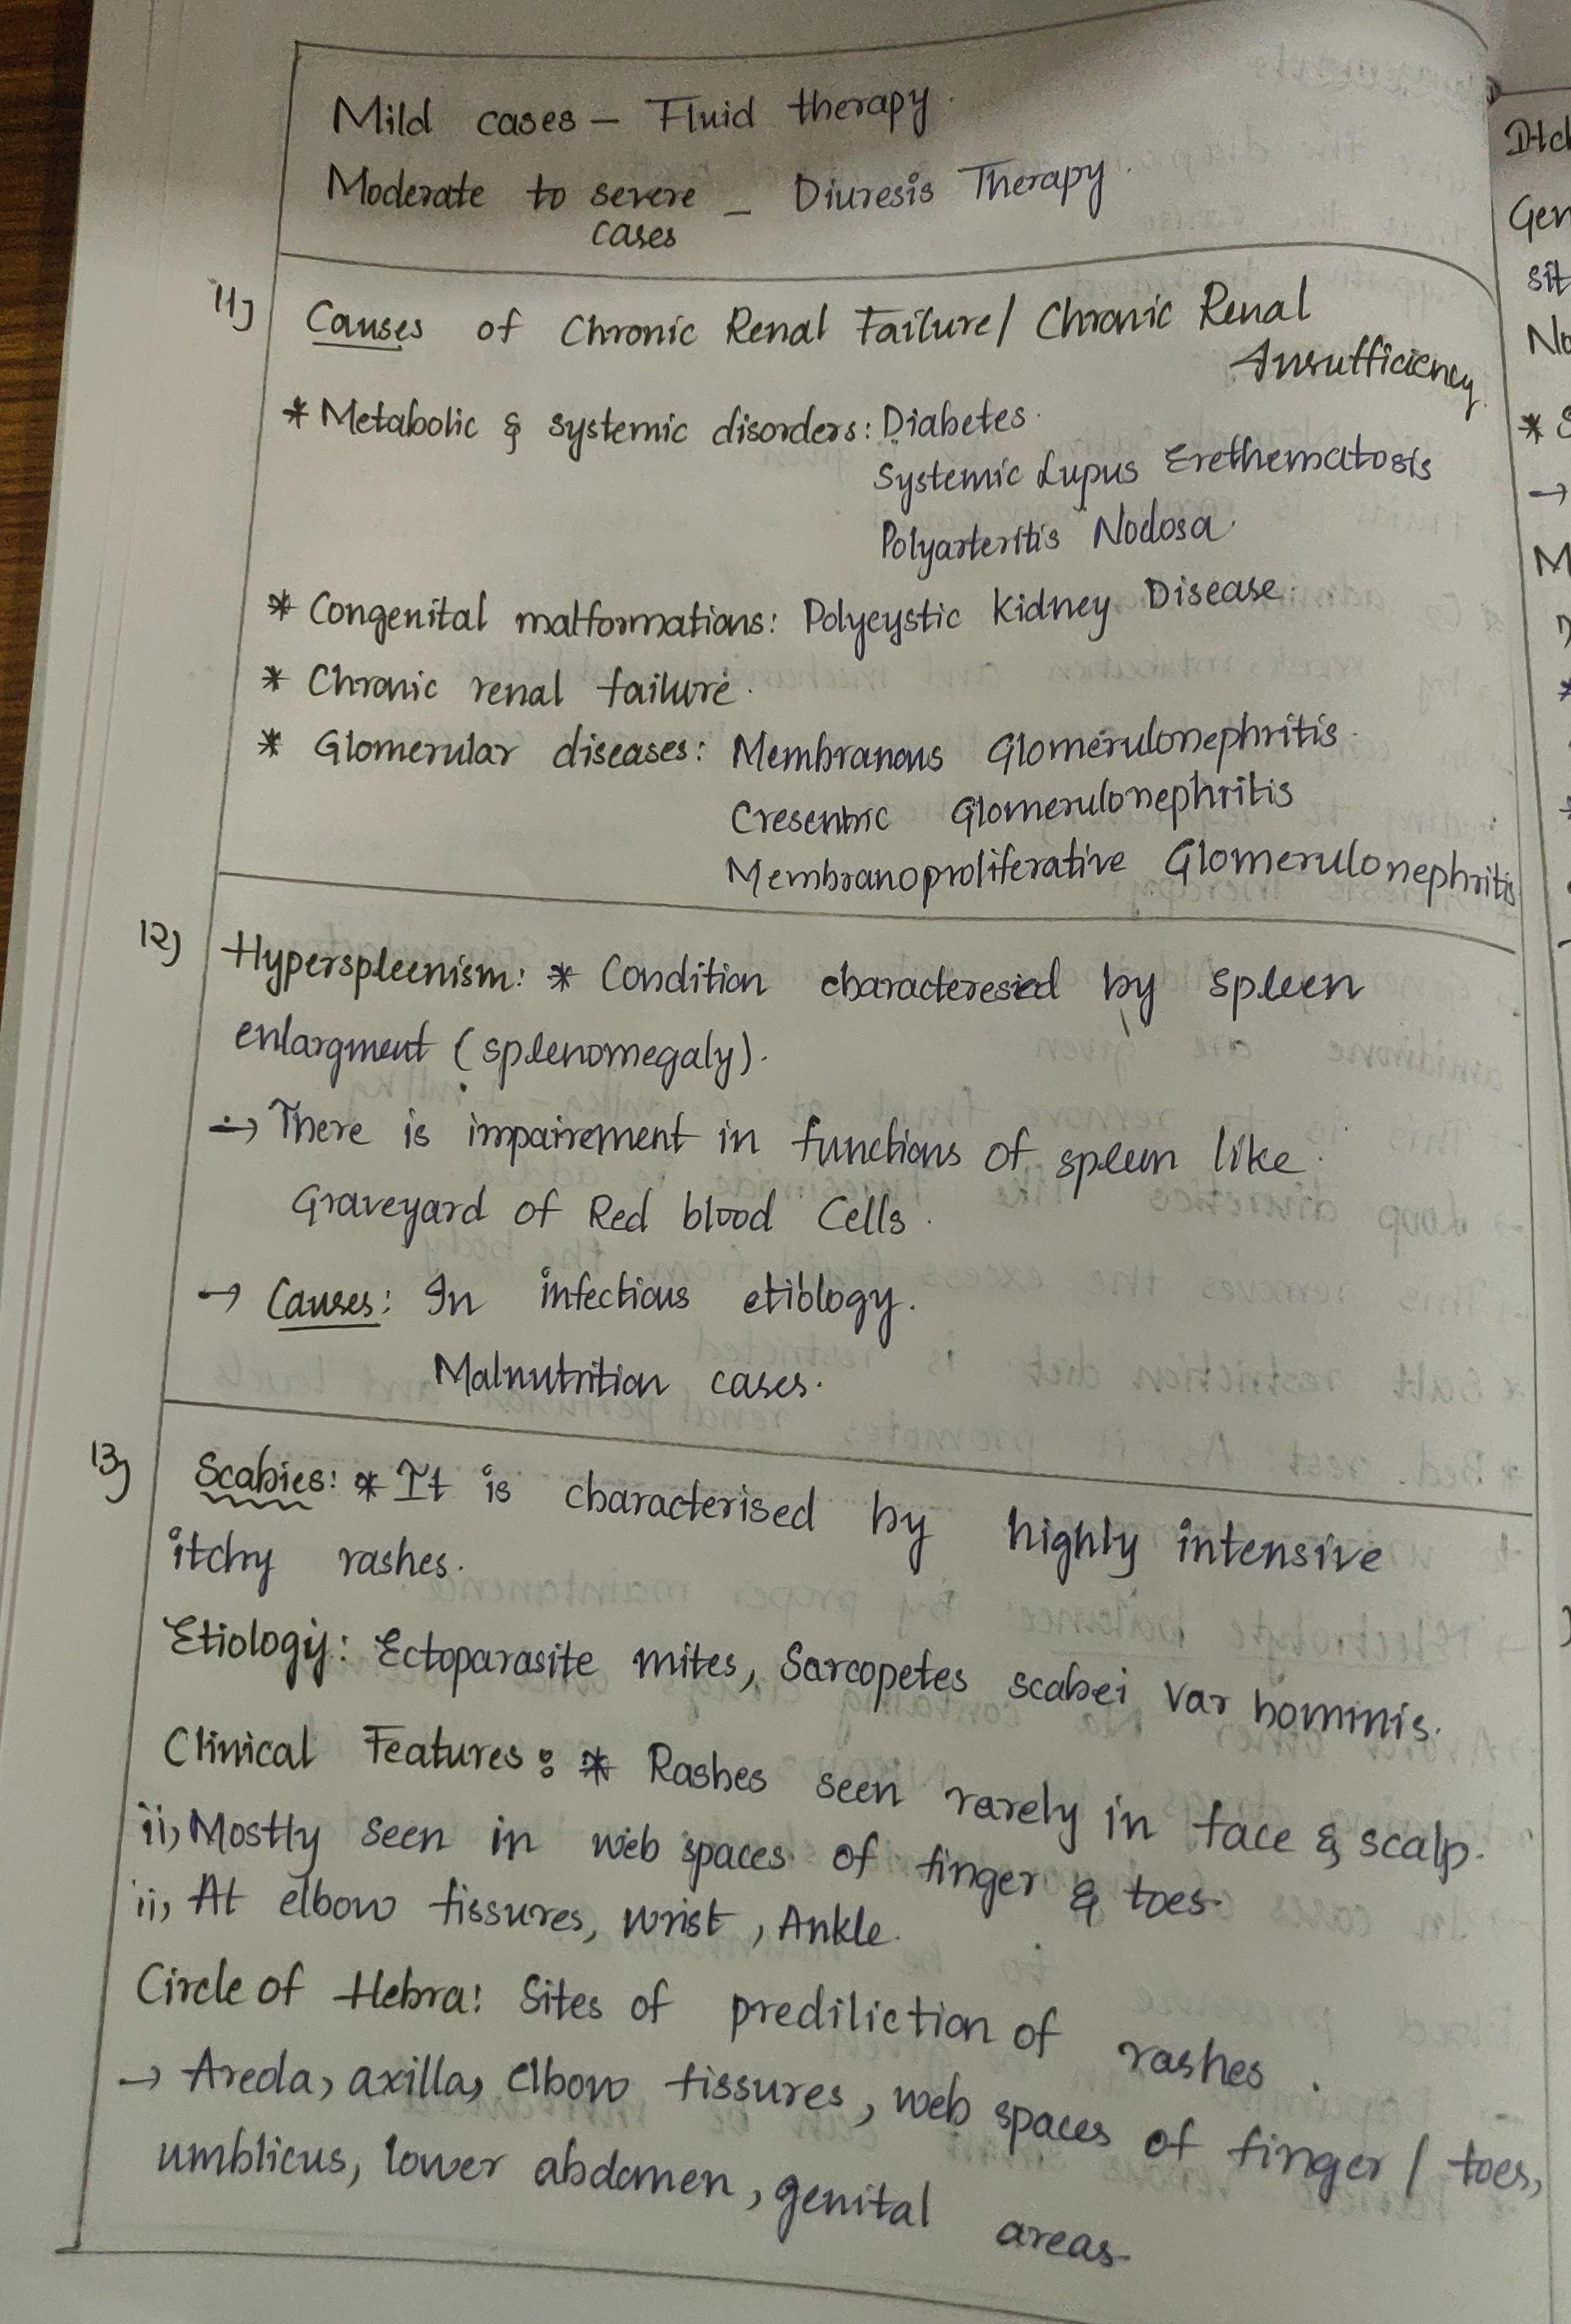 Mild cases – Fluid therapy.
Moderate to severe – Diuresis Therapy.
cases
11) Causes of Chronic Renal Failure/ Chronic Renal
Insufficiency.
* Metabolic & systemic disorders: Diabetes.
Systemic Lupus Erethematosis
Polyarteritis Nodosa.
* Congenital malformations: Polycystic Kidney Disease.
* Chronic renal failure.
* Glomerular diseases: Membranous Glomerulonephritis.
Cresentric Glomerulonephritis
Membranoproliferative Glomerulonephritis
12) Hyperspleenism: * Condition characteresied by spleen
enlargment (splenomegaly).
→ There is impairement in functions of spleen like.
Graveyard of Red blood Cells.
→ Causes: In infectious etiology.
Malnutrition cases.
13) Scabies: * It is characterised by highly intensive
itchy rashes.
Etiology: Ectoparasite mites, Sarcopetes scabei var hominis.
Clinical Features: * Rashes seen rarely in face & scalp.
ii, Mostly seen in web spaces of finger & toes.
ii, At elbow fissures, wrist, Ankle.
Circle of Hebra: Sites of prediliction of rashes.
→ Areola, axilla, elbow fissures, web spaces of finger / toes,
umblicus, lower abdomen, genital areas.